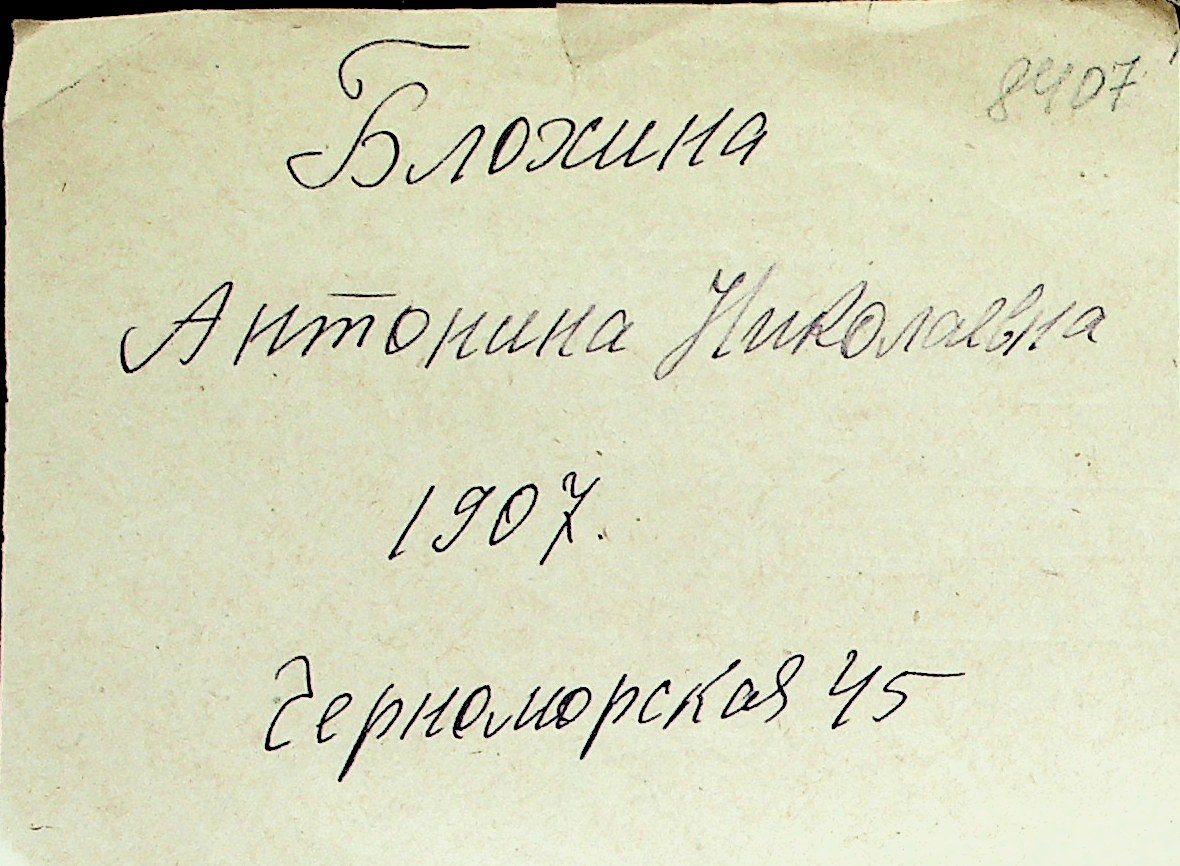 8407
Блохина
Антонина Николаевна
1907.
Черноморская 45